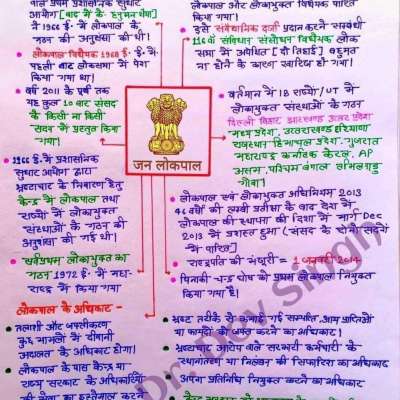 वाले प्रथम प्रशासनिक सुधार
आयोग [बाद में के. हनुमन्थैया]
ने 1966 ई. में लोकपाल के
गठन की अनुशंसा की थी।
लोकपाल विधेयक 1968 ई. में
पहली बार लोकसभा में पेश
किया गया था।
वर्ष 2011 के पूर्व तक
यह कुल 10 बार संसद
के किसी ना किसी
सदन में प्रस्तुत किया
गया।
1966 ई. में प्रशासनिक
सुधार आयोग द्वारा
भ्रष्टाचार के निवारण हेतु
केन्द्र में लोकपाल तथा
राज्यों में लोकायुक्त
संस्थाओं के गठन की
अनुशंसा की गई थी।
सर्वप्रथम लोकायुक्त का
गठन 1972 ई. में महा-
राष्ट्र में किया गया
लोकपाल के अधिकार -
तलाशी और जब्तीकरण
कुछ मामलों में दीवानी
अदालत के अधिकार होगा।
लोकपाल के पास केन्द्र या
राज्य सरकार के अधिकारियों
की सेवा का इस्तेमाल करने
जन लोकपाल
लोकपाल और लोकायुक्त विधेयक पारित
किया गया।
इसे संवैधानिक दर्जा प्रदान करने सम्बंधी
116 वें संविधान संशोधन विधेयक लोक
सभा में अपेक्षित [दो तिहाई] बहुमत
ना होने के कारण खारिज हो गया।
वर्तमान में 18 राज्यों/UT में
लोकायुक्त संस्थाओं के गठन
दिल्ली बिहार झारखण्ड उत्तर प्रदेश
मध्य प्रदेश, उत्तराखण्ड हरियाणा
राजस्थान हिमाचल प्रदेश, गुजरात
महाराष्ट्र कर्नाटक केरल, AP
असम, पश्चिम बंगाल तमिलनाडु
गोवा।
लोकपाल एवं लोकायुक्त अधिनियम 2013
46 वर्षों की लम्बी प्रतीक्षा के बाद देश में
लोकपाल की स्थापना की दिशा में मार्ग Dec
2013 में प्रशस्त हुआ (संसद के दोनों सदनों
में पारित)
राष्ट्रपति की मंजूरी = 1 जनवरी 2014
पिनाकी चन्द्र घोष को प्रथम लोकपाल नियुक्त
किया गया है।
भ्रष्ट तरीके से कमाई गई सम्पत्ति, आय प्राप्तियों
या फायदों को जब्त करने का अधिकार।
भ्रष्टाचार आरोप वाले सरकारी कर्मचारी के
स्थानांतरण या निलंबन की सिफारिश का अधिकार
अपना प्रतिनिधि नियुक्त करने का अधिकार
Dr. Dev Singh